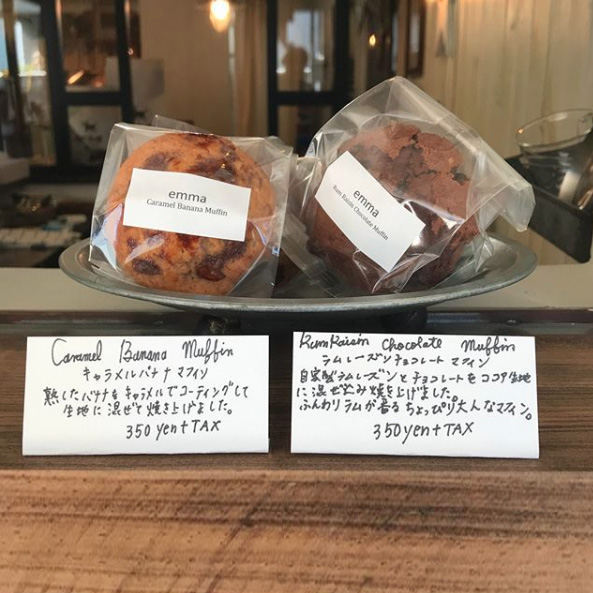 emma
Caramel Banana Muffin
emma
Rum Raisin Chocolate Muffin
Caramel Banana Muffin
キャラメルバナナマフィン
熟したバナナをキャラメルでコーティングして
生地に混ぜて焼き上げました。
350yen+TAX
RumRaisin chocolate muffin
ラムレーズンチョコレートマフィン
自家製ラムレーズンとチョコレートをココア生地
に混ぜ込み焼き上げました。
ふんわりラムが香るちょっぴり大人なマフィン。
350yen+TAX